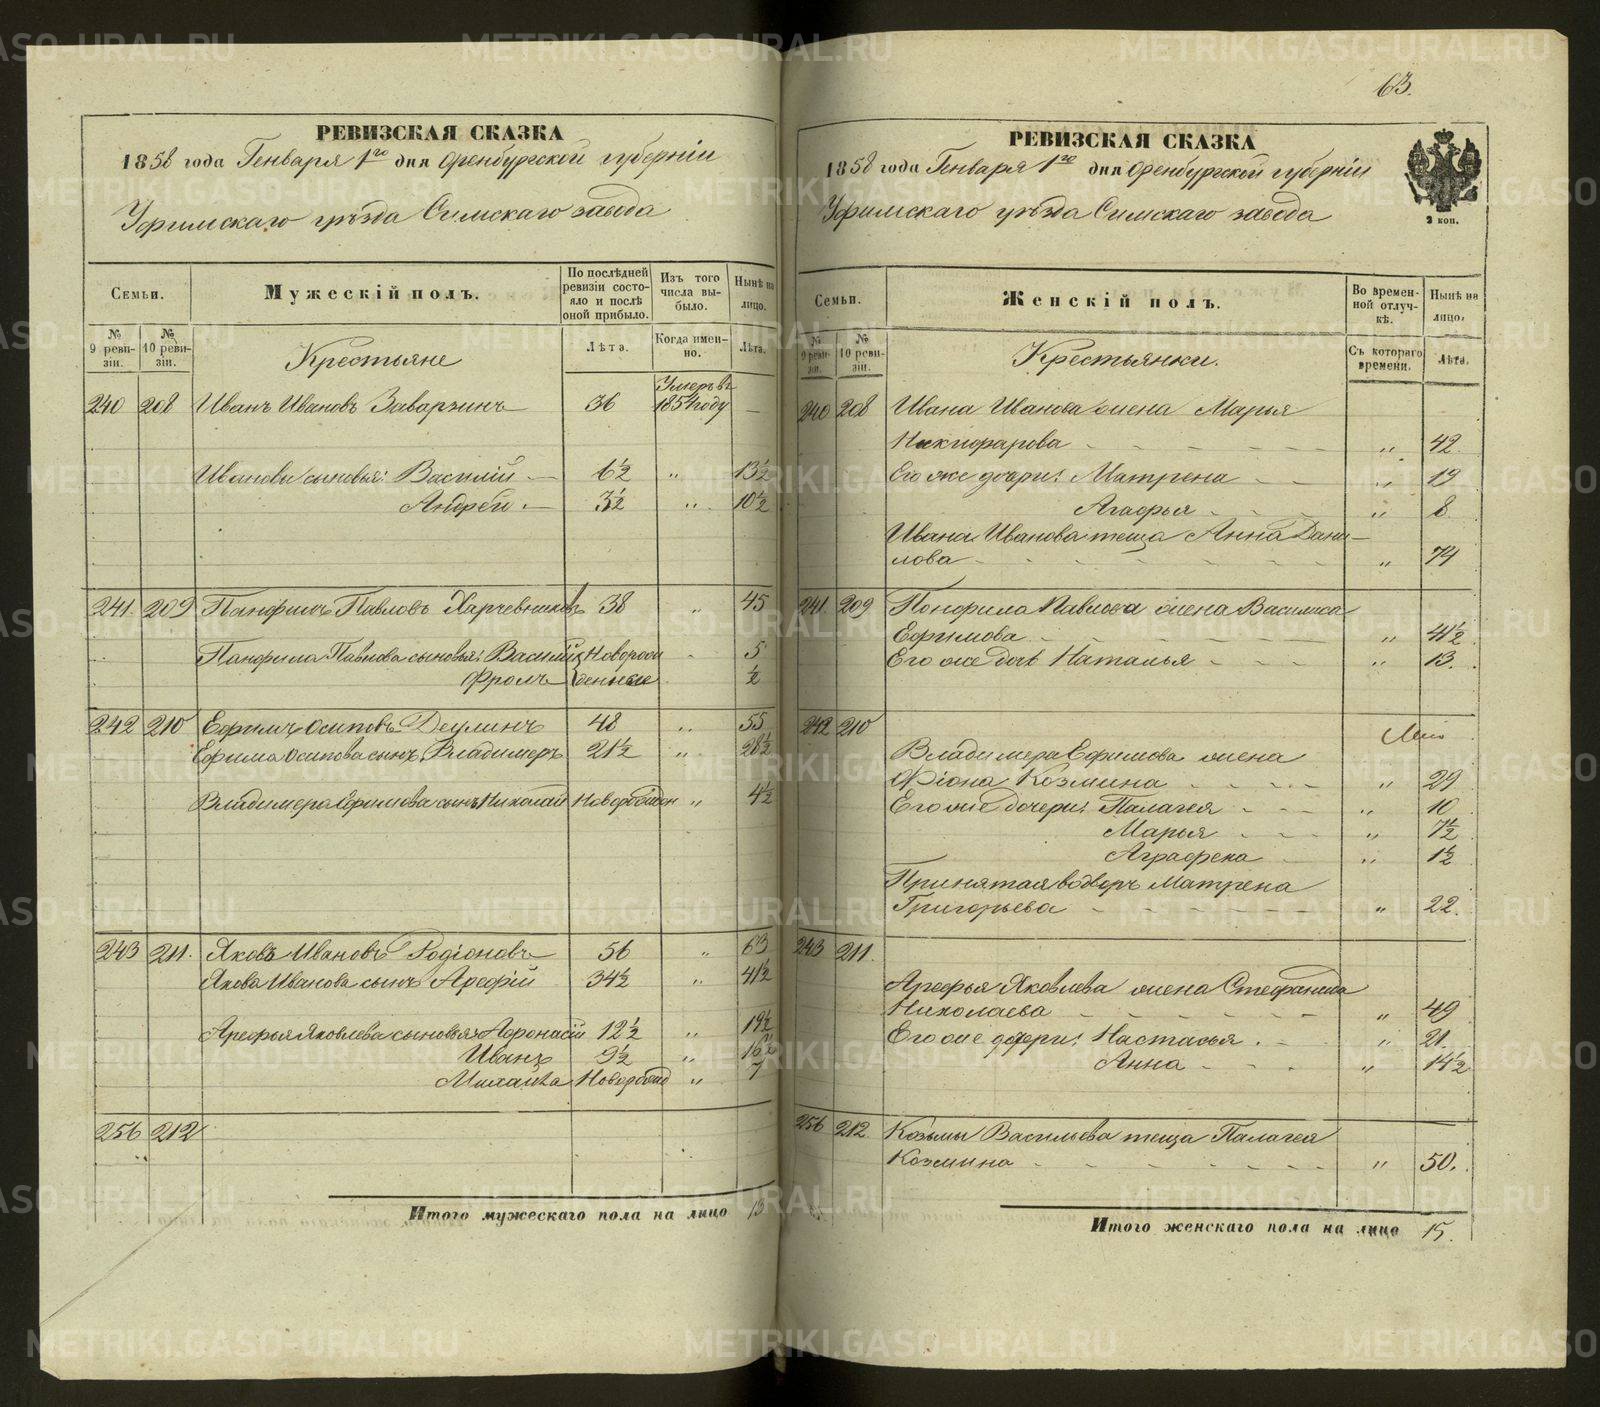 63.
РЕВИЗСКАЯ СКАЗКА
1858 года Генваря 1го дня Оренбургской губерніи
Уфимскаго уѣзда Симскаго завода
Семьи.
Мужескій полъ.
По послѣдней ревизіи состояло и послѣ оной прибыло.
Изъ того числа выбыло.
Нынѣ на лицо.
№ 9 ревизіи.
№ 10 ревизіи.
Крестьяне
Лѣта.
Когда именно.
Лѣта.
240 208 Иванъ Ивановъ Заварзинъ 36 Умеръ въ 1854 году —
Ивановы сыновья: Василій — 6½ " 13½
Андрей — 3½ " 10½
241. 209 Панфилъ Павловъ Харчевниковъ 38 " 45
Панфила Павлова сыновья: Василій Новорож 5
Фролъ денные ½
242 210 Ефимъ Осиповъ Деулинъ 48 " 55
Ефима Осипова сынъ Владимеръ 21½ " 28½
Владимера Ефимова сынъ Николай Новорожден " 4½
243 211. Яковъ Ивановъ Родіоновъ 56 " 63
Якова Иванова сынъ Арефій 34½ " 41½
Арефья Яковлева сыновья: Афонасій 12½ " 19½
Иванъ 9½ " 16½
Михайла Новорожд " 7
256 212
Итого мужескаго пола на лицо 13
РЕВИЗСКАЯ СКАЗКА
1858 года Генваря 1го дня Оренбургской губерніи
Уфимскаго уѣзда Симскаго завода
2 коп.
Семьи.
Женскій полъ.
Во временной отлучкѣ.
Нынѣ на лицо.
№ 9 ревизіи.
№ 10 ревизіи.
Крестьянки.
Съ котораго времени.
Лѣта.
240 208 Ивана Иванова жена Марья
Никифарова " 42.
Его же дочери: Матрена " 19
Агафья " 8
Ивана Иванова теща Анна Дани—
лова " 74
241. 209 Понфила Павлова жена Василиса
Ефимова " 41½
Его же дочь Наталья " 13.
242 210
Владимера Ефимова жена
Фіона Козмина " 29
Его же дочери: Палагея " 10
Марья " 7½
Аграфена " 1½
Принятая во дворъ Матрена
Григорьева " 22.
243 211.
Арефья Яковлева жена Стефанида
Николаева " 49
Его же дочери: Настасья " 21.
Анна " 14½
256 212. Козьмы Васильева теща Палагея
Козмина " 50.
Итого женскаго пола на лицо 15.
METRIKI.GASO-URAL.RU